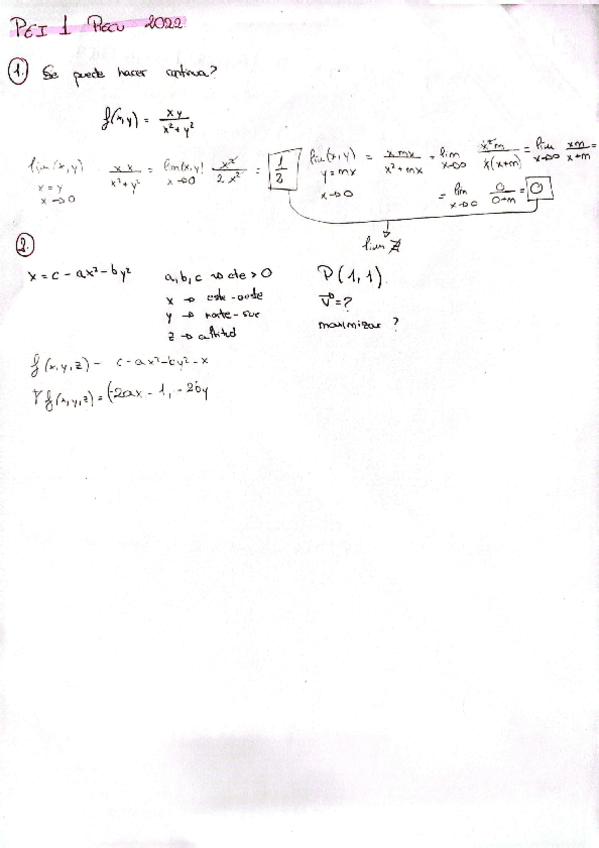 PEI 1 RECU 2022
1. Se puede hacer continua?
f(x,y) = xy / x²+y²
lim(x,y) x=y x→0 x x / x²+y² = lim(x,y) x→0 x² / 2x² = 1/2 lim(x,y) y=mx x→0 = x mx / x²+mx = lim x→0 x²m / x(x+m) = lim x→0 xm / x+m =
= lim x→0 0 / 0+m = 0
lim ∄
2.
x = c - ax² - by² a,b,c → cte > 0 P(1,1)
x → este-oeste v = ?
y → norte-sur maximizar ?
z → altitud
f(x,y,z) = c - ax² - by² - x
∇f(x,y,z) = (-2ax - 1, -2by